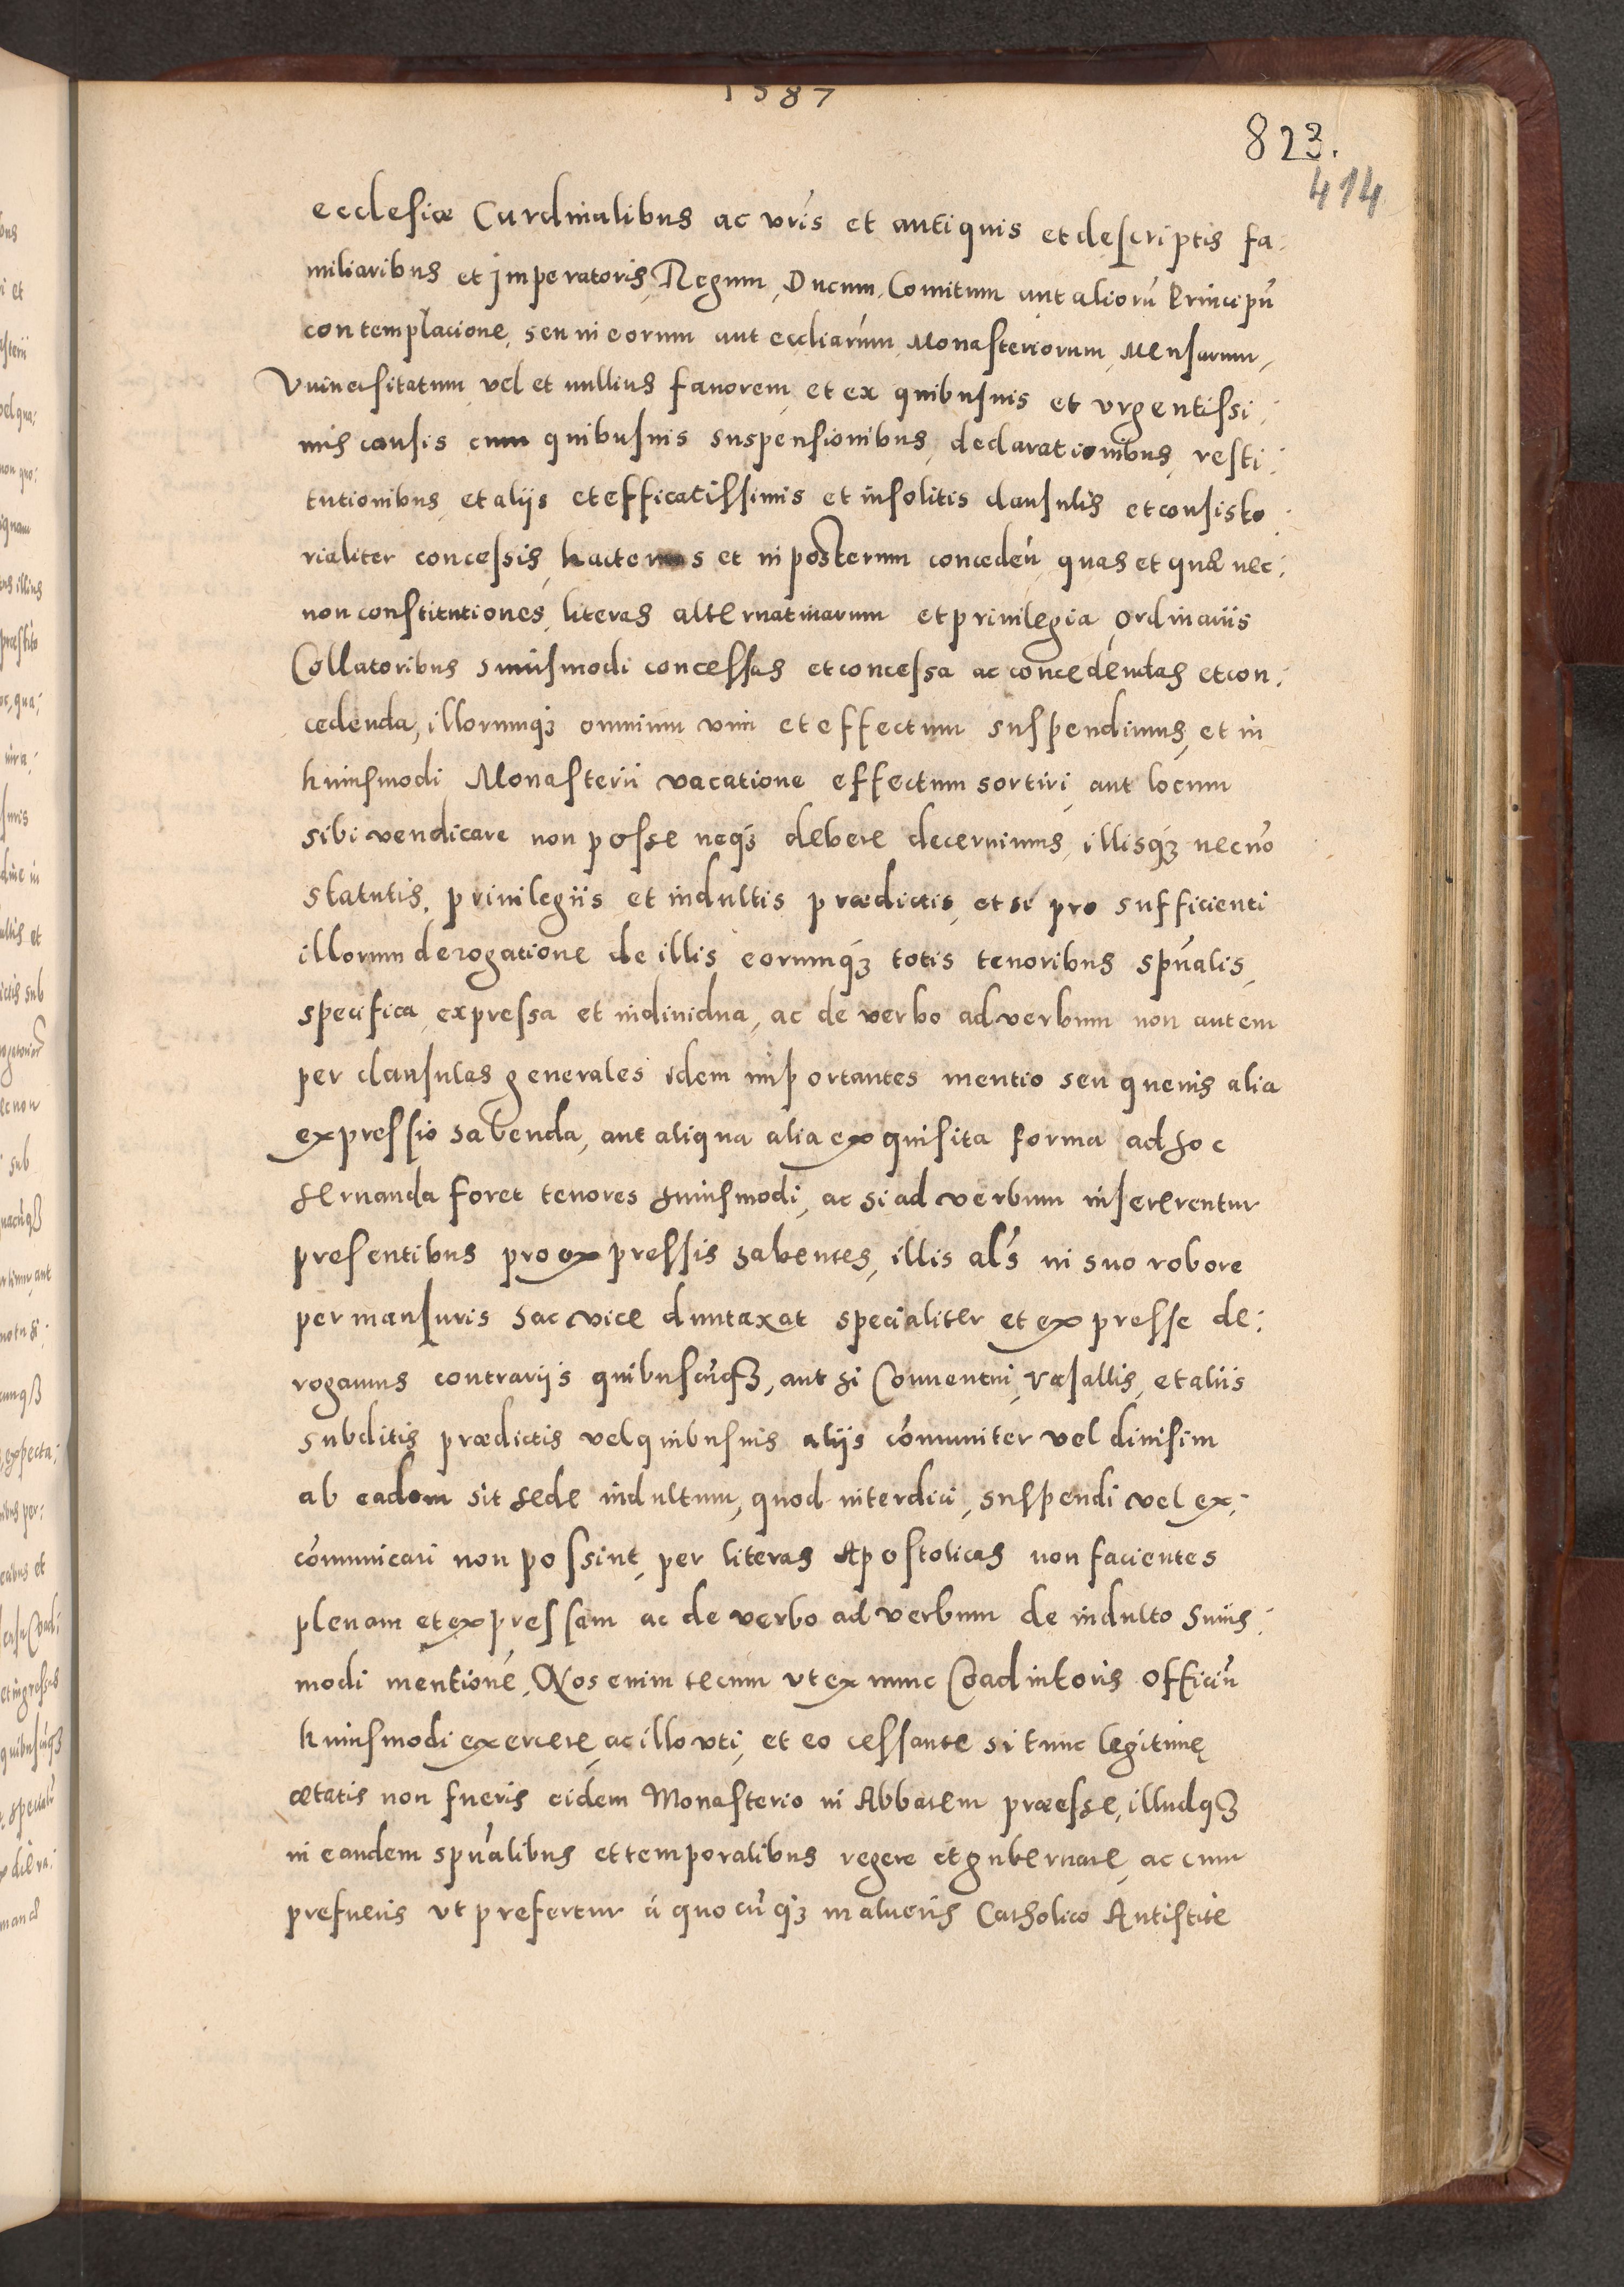 1587
823.
414
ecclesiæ Cardinalibus ac vr̃is et antiquis et descriptis fa:
miliaribus et Imperatoris, Regum, Ducum, Comitum aut aliorũ Principũ
contemplacione, seu in eorum aut eccliarum, Monasteriorum, Mensarum,
Vniuersitatum vel et nullius fauorem, et ex quibusuis et vrgentissi:
mis causis cum quibusuis suspensionibus, declarationibus, resti:
tutionibus, et aliis et efficacissimis et insolitis clausulis et consisto:
rialiter concessis, hactenus et in posterum conceden̄, quas et quæ nec:
non constitutiones, literas alternatiuarum et priuilegia, ordinariis
Collatoribus huiusmodi concessas et concessa ac concedendas et con:
cedenda, illorumqꝫ omnium vim et effectum suspendimus, et in
huiusmodi Monasterii vacatione effectum sortiri, aut locum
sibi vendicare non posse neqꝫ debere decernimus, illisqꝫ necnõ
statutis, priuilegiis et indultis prædictis, et si pro sufficienti
illorum derogatione de illis eorumqꝫ totis tenoribus spũalis,
specifica, expressa et indiuidua, ac de verbo ad verbum non autem
per clausulas generales idem importantes mentio seu queuis alia
expressio habenda, aut aliqua alia exquisita forma ad hoc
seruanda foret tenores huiusmodi, ac si ad verbum insererentur
presentibus pro expressis habentes, illis al̃s in suo robore
permansuris hac vice duntaxat specialiter et expresse de:
rogamus contrariis quibuscũqꝫ, aut si Conuentui, vasallis, et aliis
subditis prædictis vel quibusuis aliis cõmuniter vel diuisim
ab eadem sit sede indultum, quod interdici, suspendi vel ex:
cõmunicari non possint, per literas Apostolicas non facientes
plenam et expressam ac de verbo ad verbum de indulto huius:
modi mentionẽ, Nos enim tecum vt ex nunc Coadiutoris officiũ
huiusmodi exercere, ac illo vti, et eo cessante si tunc legitimę
ætatis non fueris eidem Monasterio in Abbatem præesse, illudqꝫ
in eandem spũalibus et temporalibus regere et gubernare, ac cum
prefueris vt prefertur à quocũqꝫ malueris Catholico Antistite